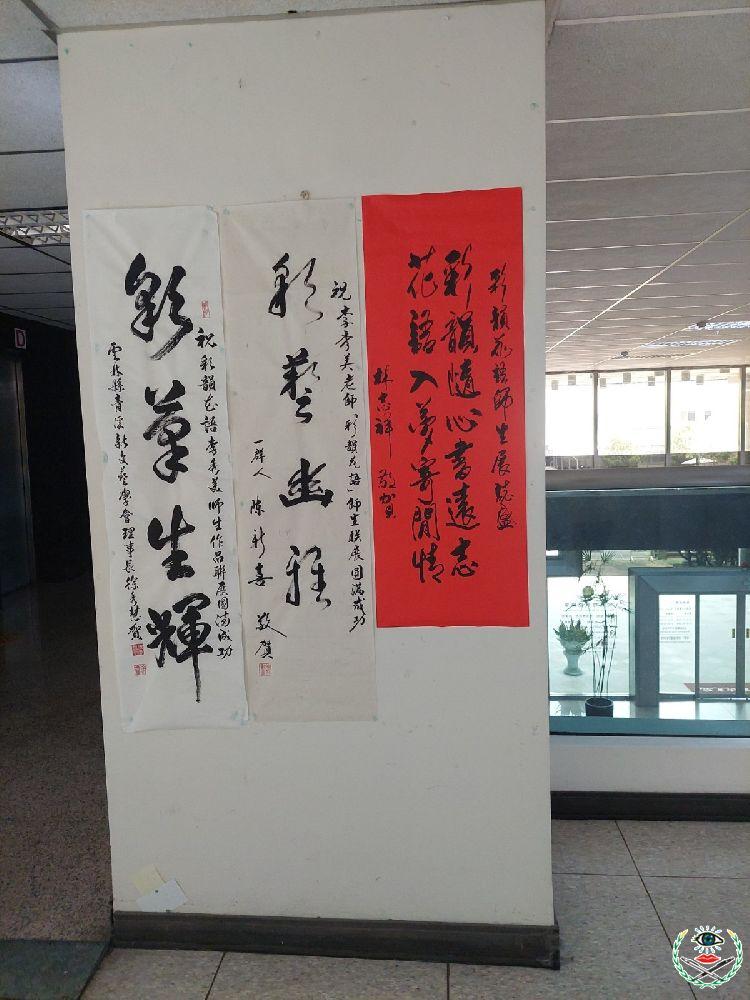 彩韻花語師生展誌盛
彩韻隨心書遠志
花語入夢寄閒情
林志祥 敬賀
祝李秀美老師「彩韻花語」師生聯展圓滿成功
彩藝幽雅
一群人 陳新喜 敬賀
祝彩韻花語李秀美師生作品聯展圓滿成功
彩筆生輝
雲林縣青溪新文藝學會理事長徐秀慧賀
D